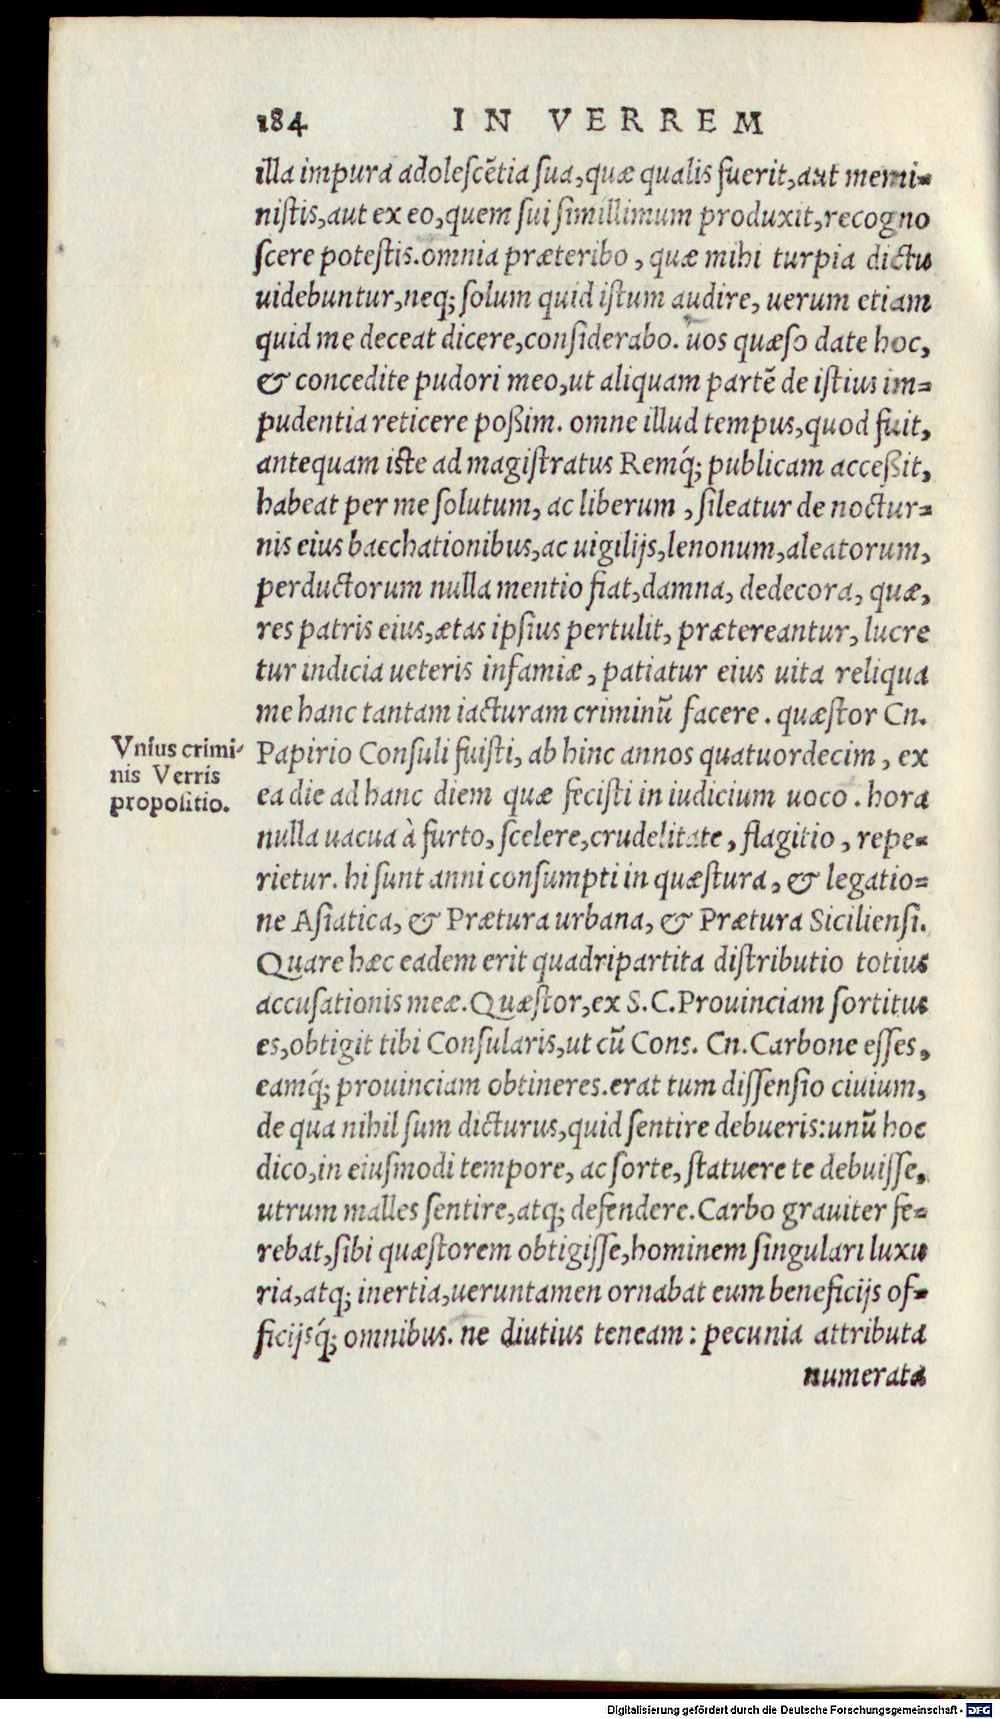 184 IN VERREM
illa impura adolescẽtia sua, quæ qualis fuerit, aut memi-
nistis, aut ex eo, quem sui simillimum produxit, recogno
scere potestis. omnia præteribo, quæ mihi turpia dictu
uidebuntur, neq; solum quid istum audire, uerum etiam
quid me deceat dicere, considerabo. uos quæso date hoc,
& concedite pudori meo, ut aliquam partẽ de istius im-
pudentia reticere poßim. omne illud tempus, quod fuit,
antequam iste ad magistratus Remq́; publicam acceßit,
habeat per me solutum, ac liberum, sileatur de noctur-
nis eius bacchationibus, ac uigilijs, lenonum, aleatorum,
perductorum nulla mentio fiat, damna, dedecora, quæ,
res patris eius, ætas ipsius pertulit, prætereantur, lucre
tur indicia ueteris infamiæ, patiatur eius uita reliqua
me hanc tantam iacturam criminũ facere. quæstor Cn.
Vnius crimi-
nis Verris
propositio.
Papirio Consuli fuisti, ab hinc annos quatuordecim, ex
ea die ad hanc diem quæ fecisti in iudicium uoco. hora
nulla uacua à furto, scelere, crudelitate, flagitio, repe-
rietur. hi sunt anni consumpti in quæstura, & legatio-
ne Asiatica, & Prætura urbana, & Prætura Siciliensi.
Quare hæc eadem erit quadripartita distributio totius
accusationis meæ. Quæstor, ex S.C. Prouinciam sortitus
es, obtigit tibi Consularis, ut cũ Cons. Cn. Carbone esses,
eamq́; prouinciam obtineres. erat tum dissensio ciuium,
de qua nihil sum dicturus, quid sentire debueris: unũ hoc
dico, in eiusmodi tempore, ac sorte, statuere te debuisse,
utrum malles sentire, atq; defendere. Carbo grauiter fe-
rebat, sibi quæstorem obtigisse, hominem singulari luxu
ria, atq; inertia, ueruntamen ornabat eum beneficijs of-
ficijsq́; omnibus. ne diutius teneam: pecunia attributa
numerata
Digitalisierung gefördert durch die Deutsche Forschungsgemeinschaft - DFG